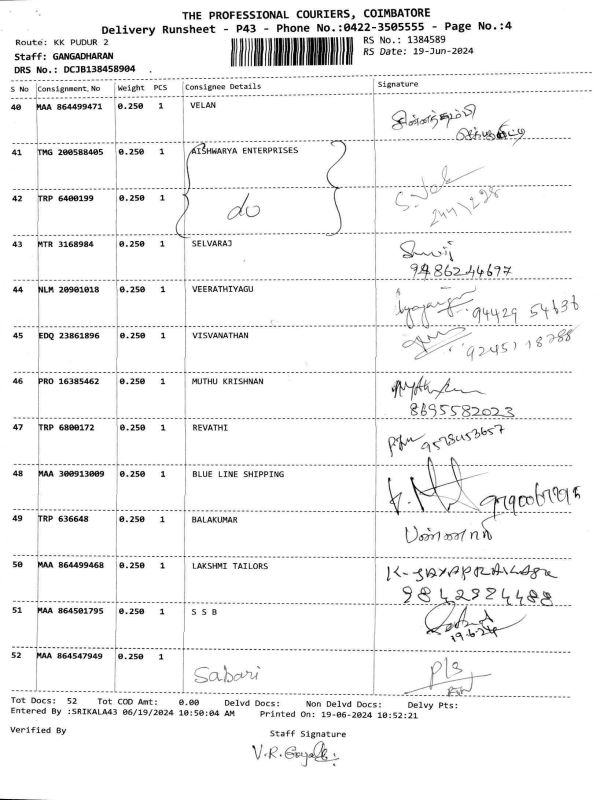 THE PROFESSIONAL COURIERS, COIMBATORE
Delivery Runsheet - P43 - Phone No.:0422-3505555 - Page No.:4
Route: KK PUDUR 2
RS No.: 1384589
Staff: GANGADHARAN
RS Date: 19-Jun-2024
DRS No.: DCJB138458904
S No Consignment.No Weight PCS Consignee Details Signature
40 MAA 864499471 0.250 1 VELAN
41 TMG 200588405 0.250 1 AISHWARYA ENTERPRISES
42 TRP 6400199 0.250 1 do
43 MTR 3168984 0.250 1 SELVARAJ
9486244697
44 NLM 20901018 0.250 1 VEERATHIYAGU
94429 54636
45 EDQ 23861896 0.250 1 VISVANATHAN
46 PRO 16385462 0.250 1 MUTHU KRISHNAN
8695582023
47 TRP 6800172 0.250 1 REVATHI
48 MAA 300913009 0.250 1 BLUE LINE SHIPPING
49 TRP 636648 0.250 1 BALAKUMAR
50 MAA 864499468 0.250 1 LAKSHMI TAILORS
51 MAA 864501795 0.250 1 S S B
19.6.24
52 MAA 864547949 0.250 1 Sabari
Tot Docs: 52 Tot COD Amt: 0.00 Delvd Docs: Non Delvd Docs: Delvy Pts:
Entered By :SRIKALA43 06/19/2024 10:50:04 AM Printed On: 19-06-2024 10:52:21
Verified By
Staff Signature